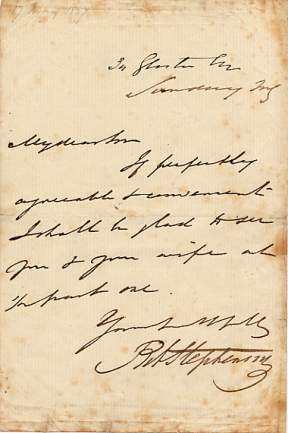 34 Gloster Sq
Sunday Mg
My dear Sir
If perfectly
agreeable & convenient
I shall be glad to see
you & your wife at
¼ past one.
Yours
Robt Stephenson